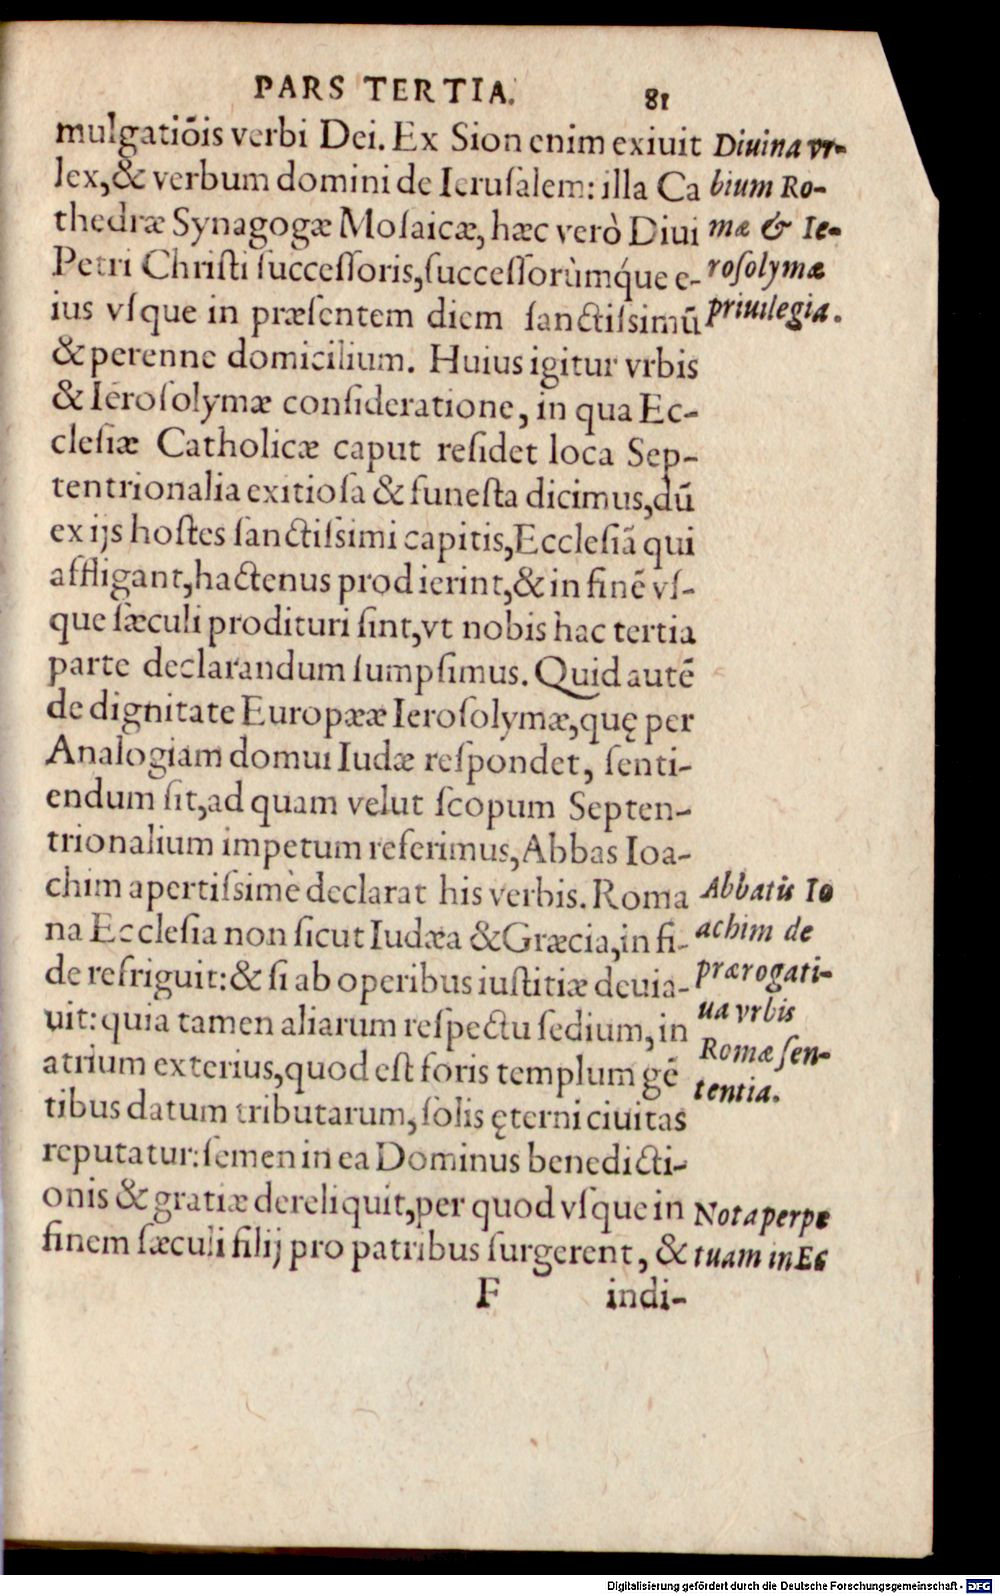 PARS TERTIA. 81
mulgatiõis verbi Dei. Ex Sion enim exiuit
lex,& verbum domini de Ieruſalem: illa Ca
thedræ Synagogæ Moſaicæ, hæc verò Diui
Petri Chriſti ſucceſſoris,ſucceſſorùmq́ue e-
ius vſque in præſentem diem ſanctiſsimū
& perenne domicilium. Huius igitur vrbis
& Ieroſolymæ conſideratione, in qua Ec-
cleſiæ Catholicæ caput reſidet loca Sep-
tentrionalia exitioſa & funeſta dicimus,dū
ex ijs hoſtes ſanctiſsimi capitis,Eccleſiā qui
affligant,hactenus prodierint,& in finē vſ-
que ſæculi prodituri ſint,vt nobis hac tertia
parte declarandum ſumpſimus. Quid autē
de dignitate Europææ Ieroſolymæ,quę per
Analogiam domui Iudæ reſpondet, ſenti-
endum ſit,ad quam velut ſcopum Septen-
trionalium impetum referimus,Abbas Ioa-
chim apertiſsimè declarat his verbis. Roma
na Eccleſia non ſicut Iudæa & Græcia,in fi-
de refriguit:& ſi ab operibus iuſtitiæ deuia-
uit:quia tamen aliarum reſpectu ſedium,in
atrium exterius,quod eſt foris templum gē
tibus datum tributarum, ſolis ęterni ciuitas
reputatur:ſemen in ea Dominus benedicti-
onis & gratiæ dereliquit,per quod vſque in
finem ſæculi filij pro patribus ſurgerent, &
F indi-
Diuina vr-
bium Ro-
mæ & Ie-
roſolymæ
priuilegia.
Abbatis Io
achim de
prærogati-
ua vrbis
Romæ ſen-
tentia.
Nota perpe
tuam in Ec
Digitalisierung gefördert durch die Deutsche Forschungsgemeinschaft - DFG